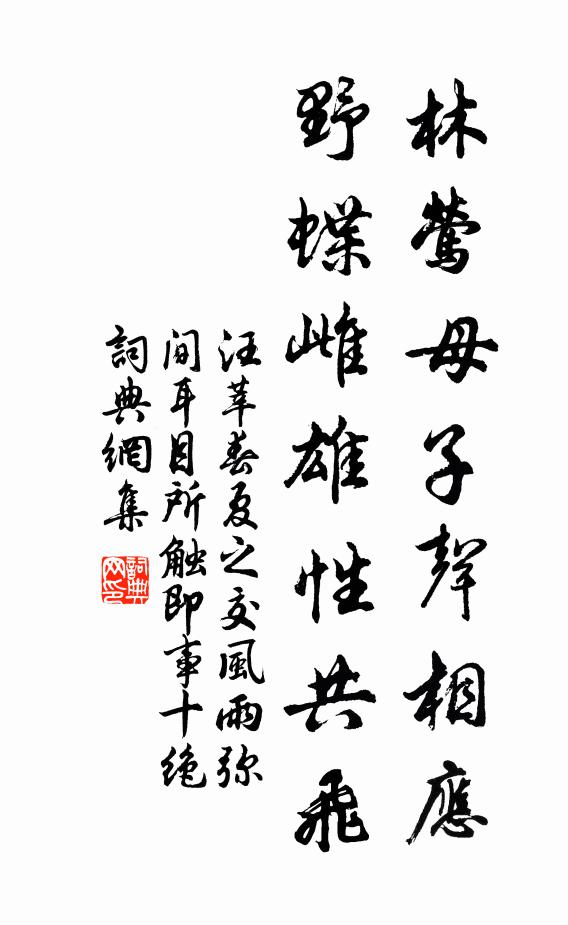 林鶯母子聲相應
野蝶雌雄性共飛
汪莘春夏之交風雨弥
間耳目所触即事十绝
詞典網集
詞典网印